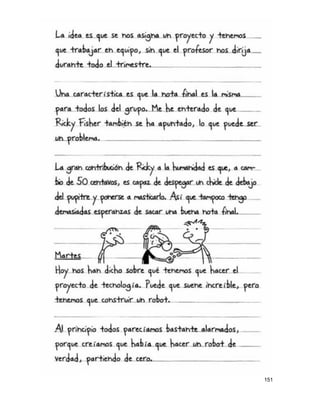 La idea es que se nos asigna un proyecto y tenemos
que trabajar en equipo, sin que el profesor nos dirija
durante todo el trimestre.
Una característica es que la nota final es la misma
para todos los del grupo. Me he enterado de que
Ricky Fisher también se ha apuntado, lo que puede ser
un problema.
La gran contribución de Ricky a la humanidad es que, a cam-
bio de 50 centavos, es capaz de despegar un chicle de debajo
del pupitre y ponerse a masticarlo. Así que tampoco tengo
demasiadas esperanzas de sacar una buena nota final.
Martes
Hoy nos han dicho sobre qué tenemos que hacer el
proyecto de tecnología. Puede que suene increíble, pero
tenemos que construir un robot.
Al principio todos parecíamos bastante alarmados,
porque creíamos que había que hacer un robot de
verdad, partiendo de cero.
151